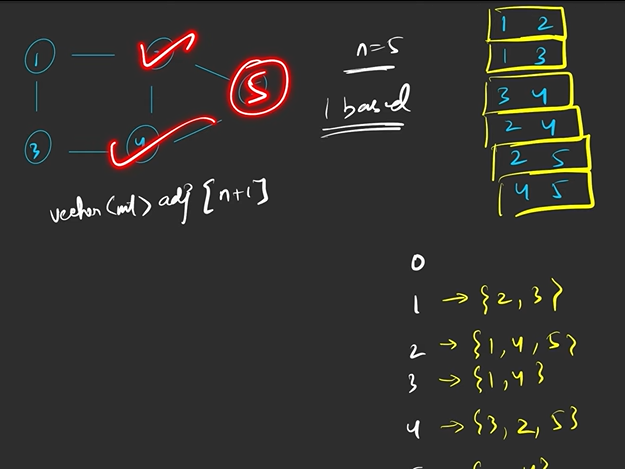 1
3
4
5
n=5
1 based
1 2
1 3
3 4
2 4
2 5
4 5
vector<int> adj [n+1]
0
1 → {2, 3}
2 → {1, 4, 5}
3 → {1, 4}
4 → {3, 2, 5}